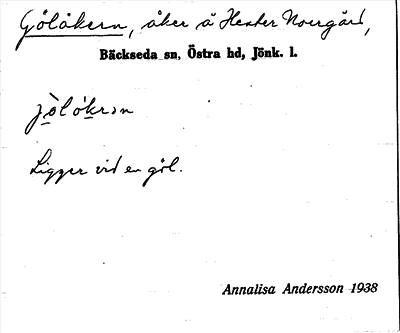 Gölåkern, åker å Hester Norrgård,
Bäckseda sn, Östra hd, Jönk. l.
jölókran
Ligger vid en göl.
Annalisa Andersson 1938